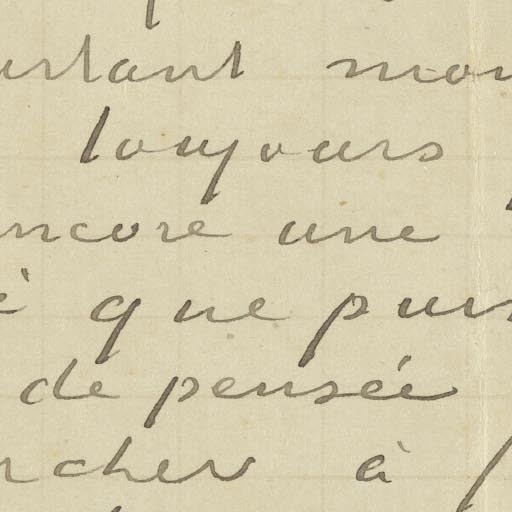 urtant mon
toujours
encore une
que puis
de pensée
rcher à